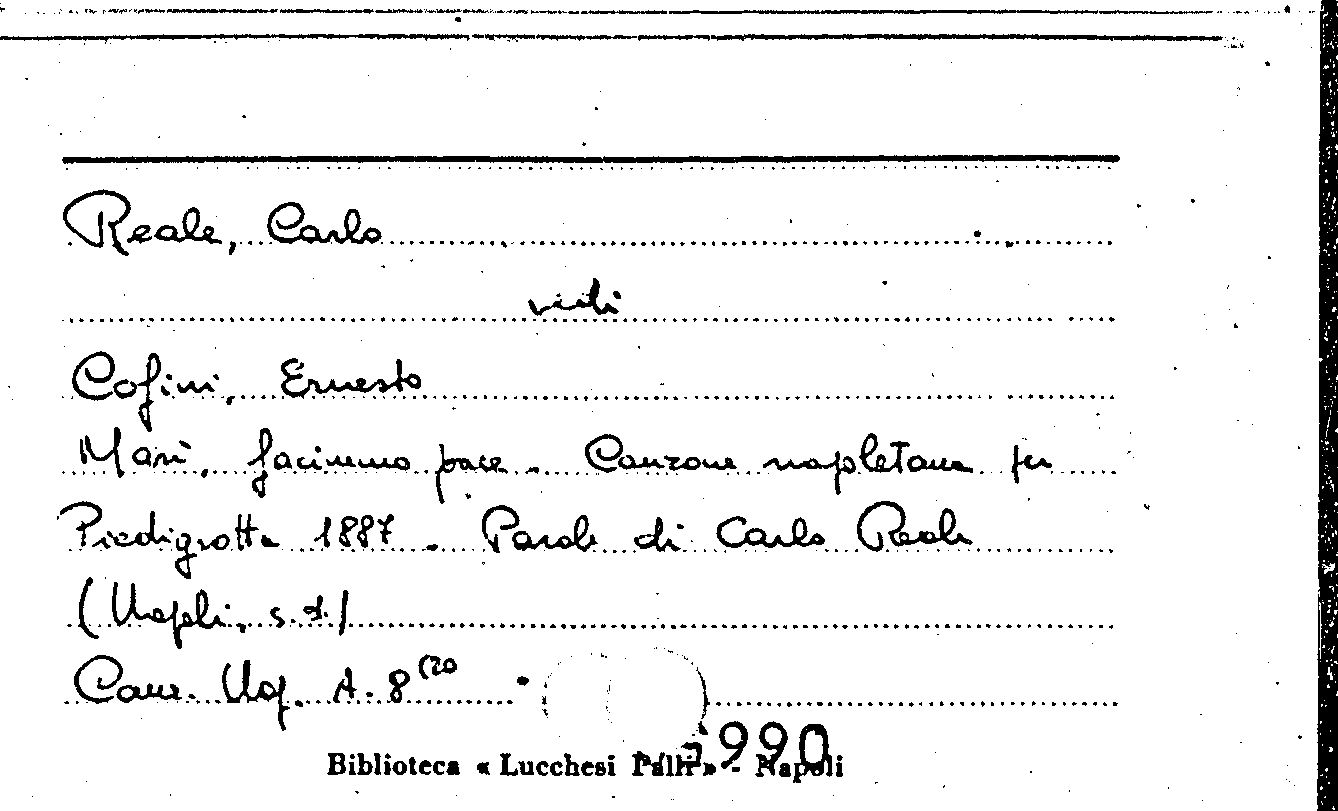 Reale, Carlo
vedi
Cofini, Ernesto
Marì, facimmo pace. Canzone napoletana per
Piedigrotta 1887. Parole di Carlo Reale
(Napoli, s.d.)
Canz. Nap. A. 8 (20
990
Biblioteca « Lucchesi Palli » - Napoli